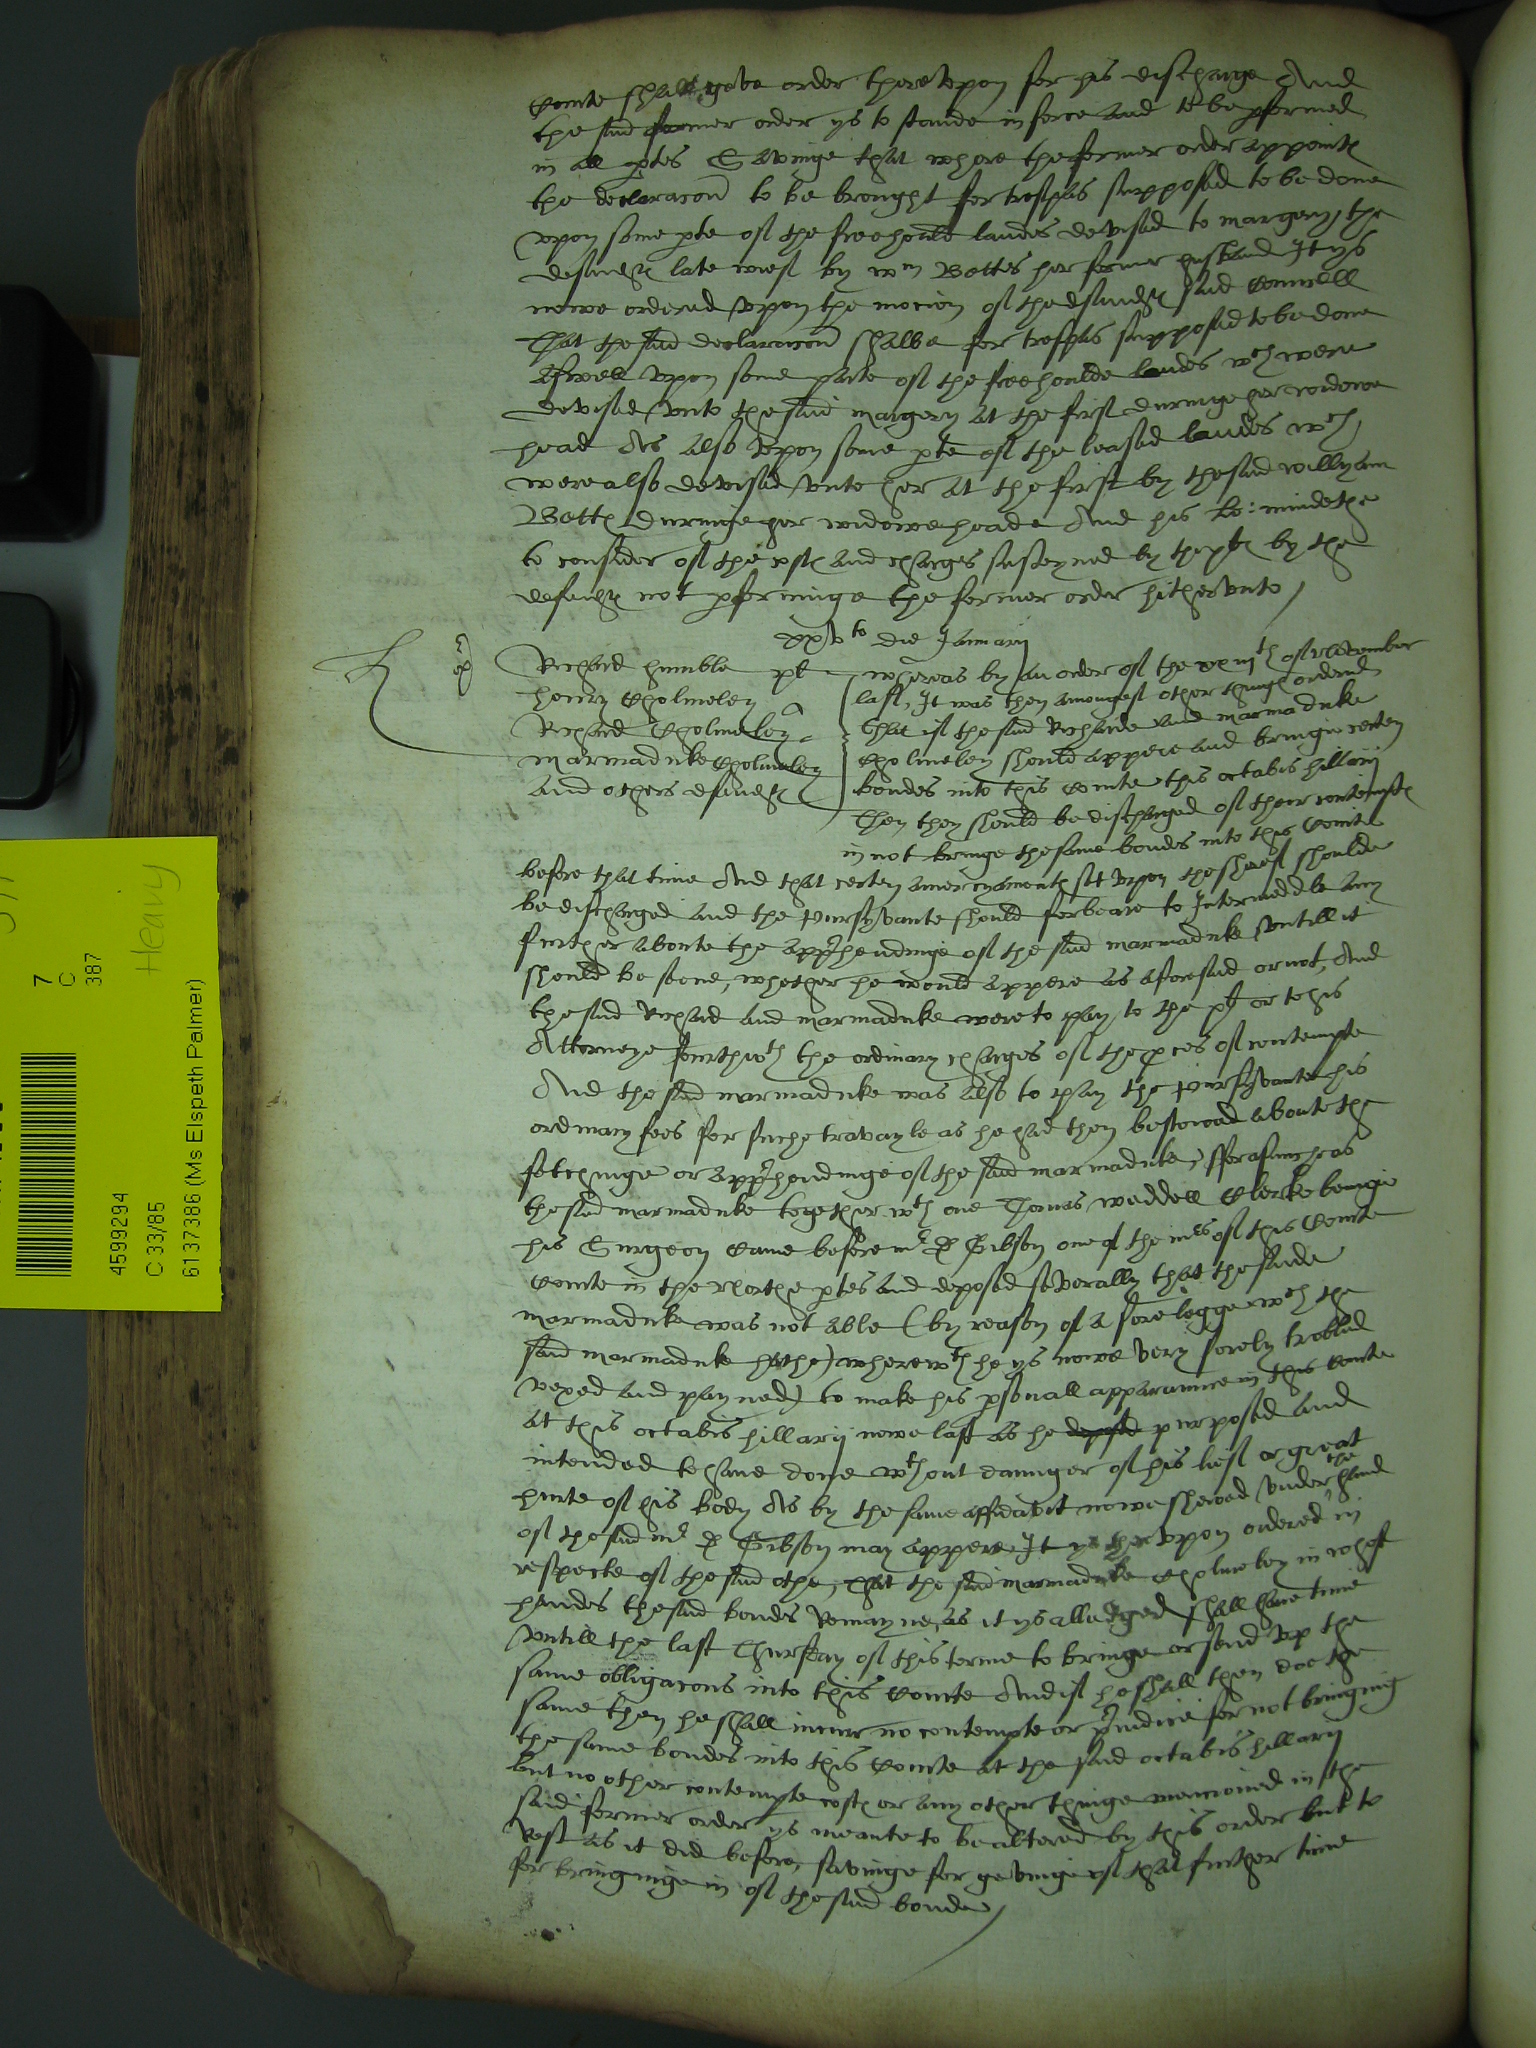 Courte shall geve order therevpon for his discharge And
the said former order ys to stande in force and to be pformed
in all ptes Savinge that where the former order appoints
the declaracon to be brought for trespas supposed to be done
vpon some pte of the freehould landes devised to margery the
defendts late wief by Wm Bettes her former husband It ys
nowe ordered vpon the mocion of the defendts said Councell
That the said declaracon shalbe for trespas supposed to be done
aswell vpon some parte of the freehoulde landes wch were
devised vnto the said margery at the first duringe her widowe
head As also vpon some pte of the leased landes wch
were also devised vnto her at the first by the said willyam
Betts duringe her widoweheade And his Lo: mindethe
to consider of the costs and charges susteyned by the plt by the
defendts not pforminge the former order hithervnto
xxvto die Januarij
Richard Humble plt
henry Cholmeley
Richard Cholmeley
Marmaduke Cholmeley
And others defendts
whereas by an order of the xxiijth of November
last, It was then amongest other things ordered
That if the said Richarde and Marmaduke
Cholmeley should appere and bringe certen
bondes into this Courte this octabis hillarij
Then they should be discharged of their contempts
in not bringe the same bondes into this Courte
before that time And that certen amercyaments set vpon the sherief shoulde
be discharged and the pursyvante should forbeare to Intermeddle any
further aboute the apprhendinge of the said Marmaduke vntill it
should be seene, whether he would appere as aforesaid or not, And
the said Richard and Marmaduke were to pay to the plt or to his
Attorneye fourthwth the ordinary charges of the pces of contempte
And the said marmaduke was also to pay the pursyvante his
ordinary fees for suche travayle as he had then bestowed aboute the
fetchinge or apprhendinge of the said marmaduke, fforasmuch as
the said marmaduke together wth one Thomas Weddell Clerke beinge
his Surgeon came before mr D Gibson one of the mrs of this Courte
Courte in the Northe ptes and deposed severally that the saide
marmaduke was not able (by reason of a sore legge wch the
said marmaduke hathe) wherewth he ys nowe very sorely trobled
vexed and payned) to make his psonall apparaunce in this Courte
at this octabis hillarij nowe last as he deposed purposed and
intended to have done wthout daunger of his lief or great
hurte of his body As by the same affidavit nowe shewed vnder the hand
of the said mr D Gibson may appere It ys thervpon ordered in
respecte of the said othe, that the said marmaduke Cholmeley in whose
handes the said bondes remayne, as it ys alledged shall have time
vntill the last Thursday of this terme to bringe or send vp the
same obligacons into this Courte And if he shall then doe the
same then he shall incurr no contempte or prjudice for not bringing
the same bondes into this Courte at the said octabis hillarij
but no other contempte costs or any other thinge mencioned in the
said former order ys meante to be altered by this order but to
rest as it did before, savinge for gevinge of that further time
for bringinge in of the said bonde
7
C
387
Heavy
4599294
C 33/85
6137386 (Ms Elspeth Palmer)